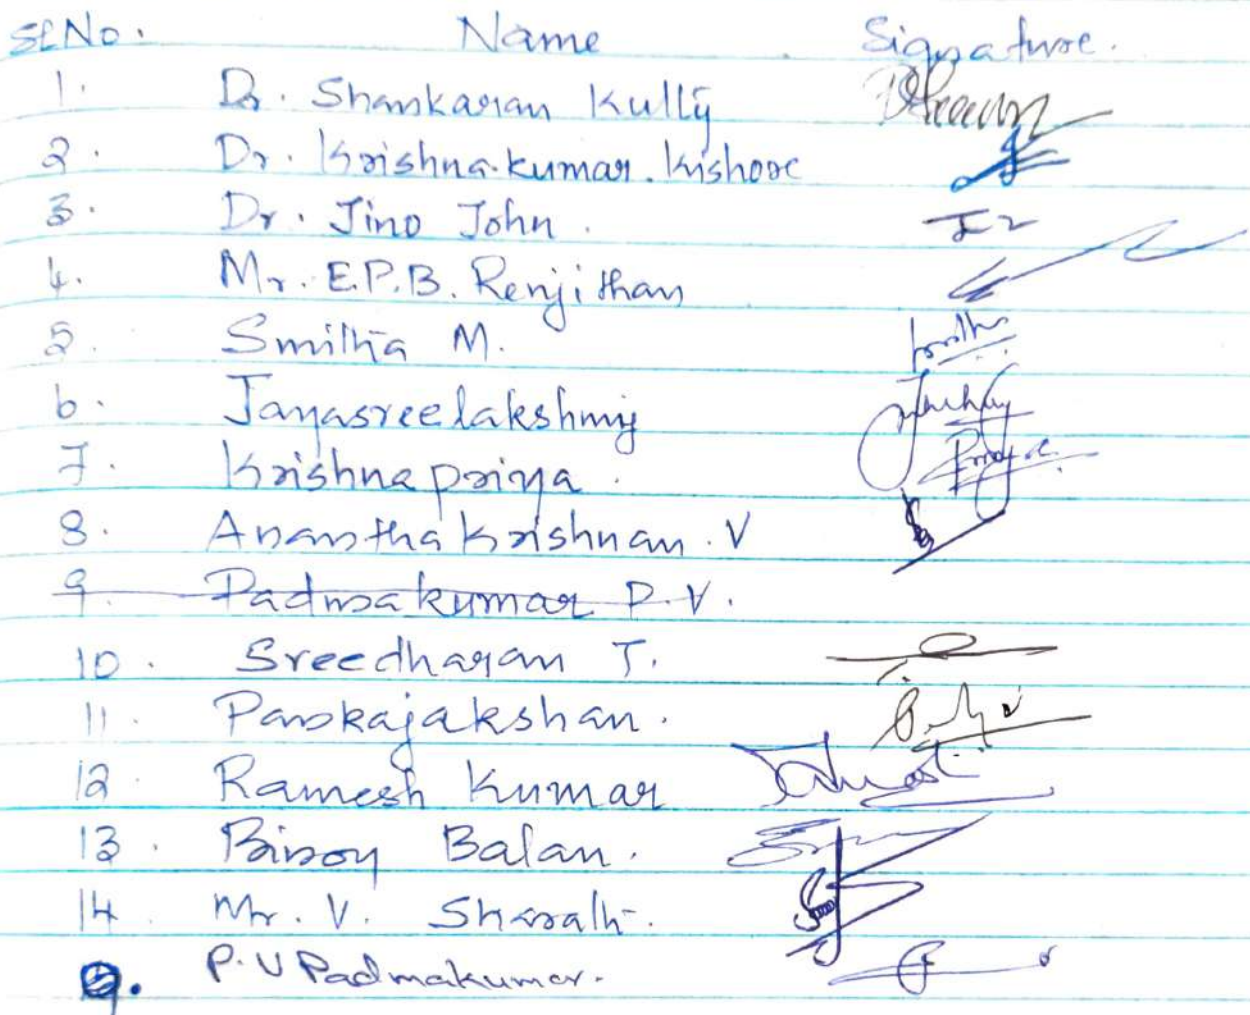 Sl.No. Name Signature.
1. Dr. Shankaran Kutty
2. Dr. Krishna kumar. Kishore
3. Dr. Jino John.
4. Mr. E.P.B. Renjithan
5. Smitha M.
6. Jayasreelakshmy
7. Krishnapriya.
8. Anantha Krishnan. V
9. Padmakumar P.V.
10. Sreedharan T.
11. Pankajakshan.
12. Ramesh Kumar
13. Binoy Balan.
14. Mr. V. Sharath.
9. P.V Padmakumar.